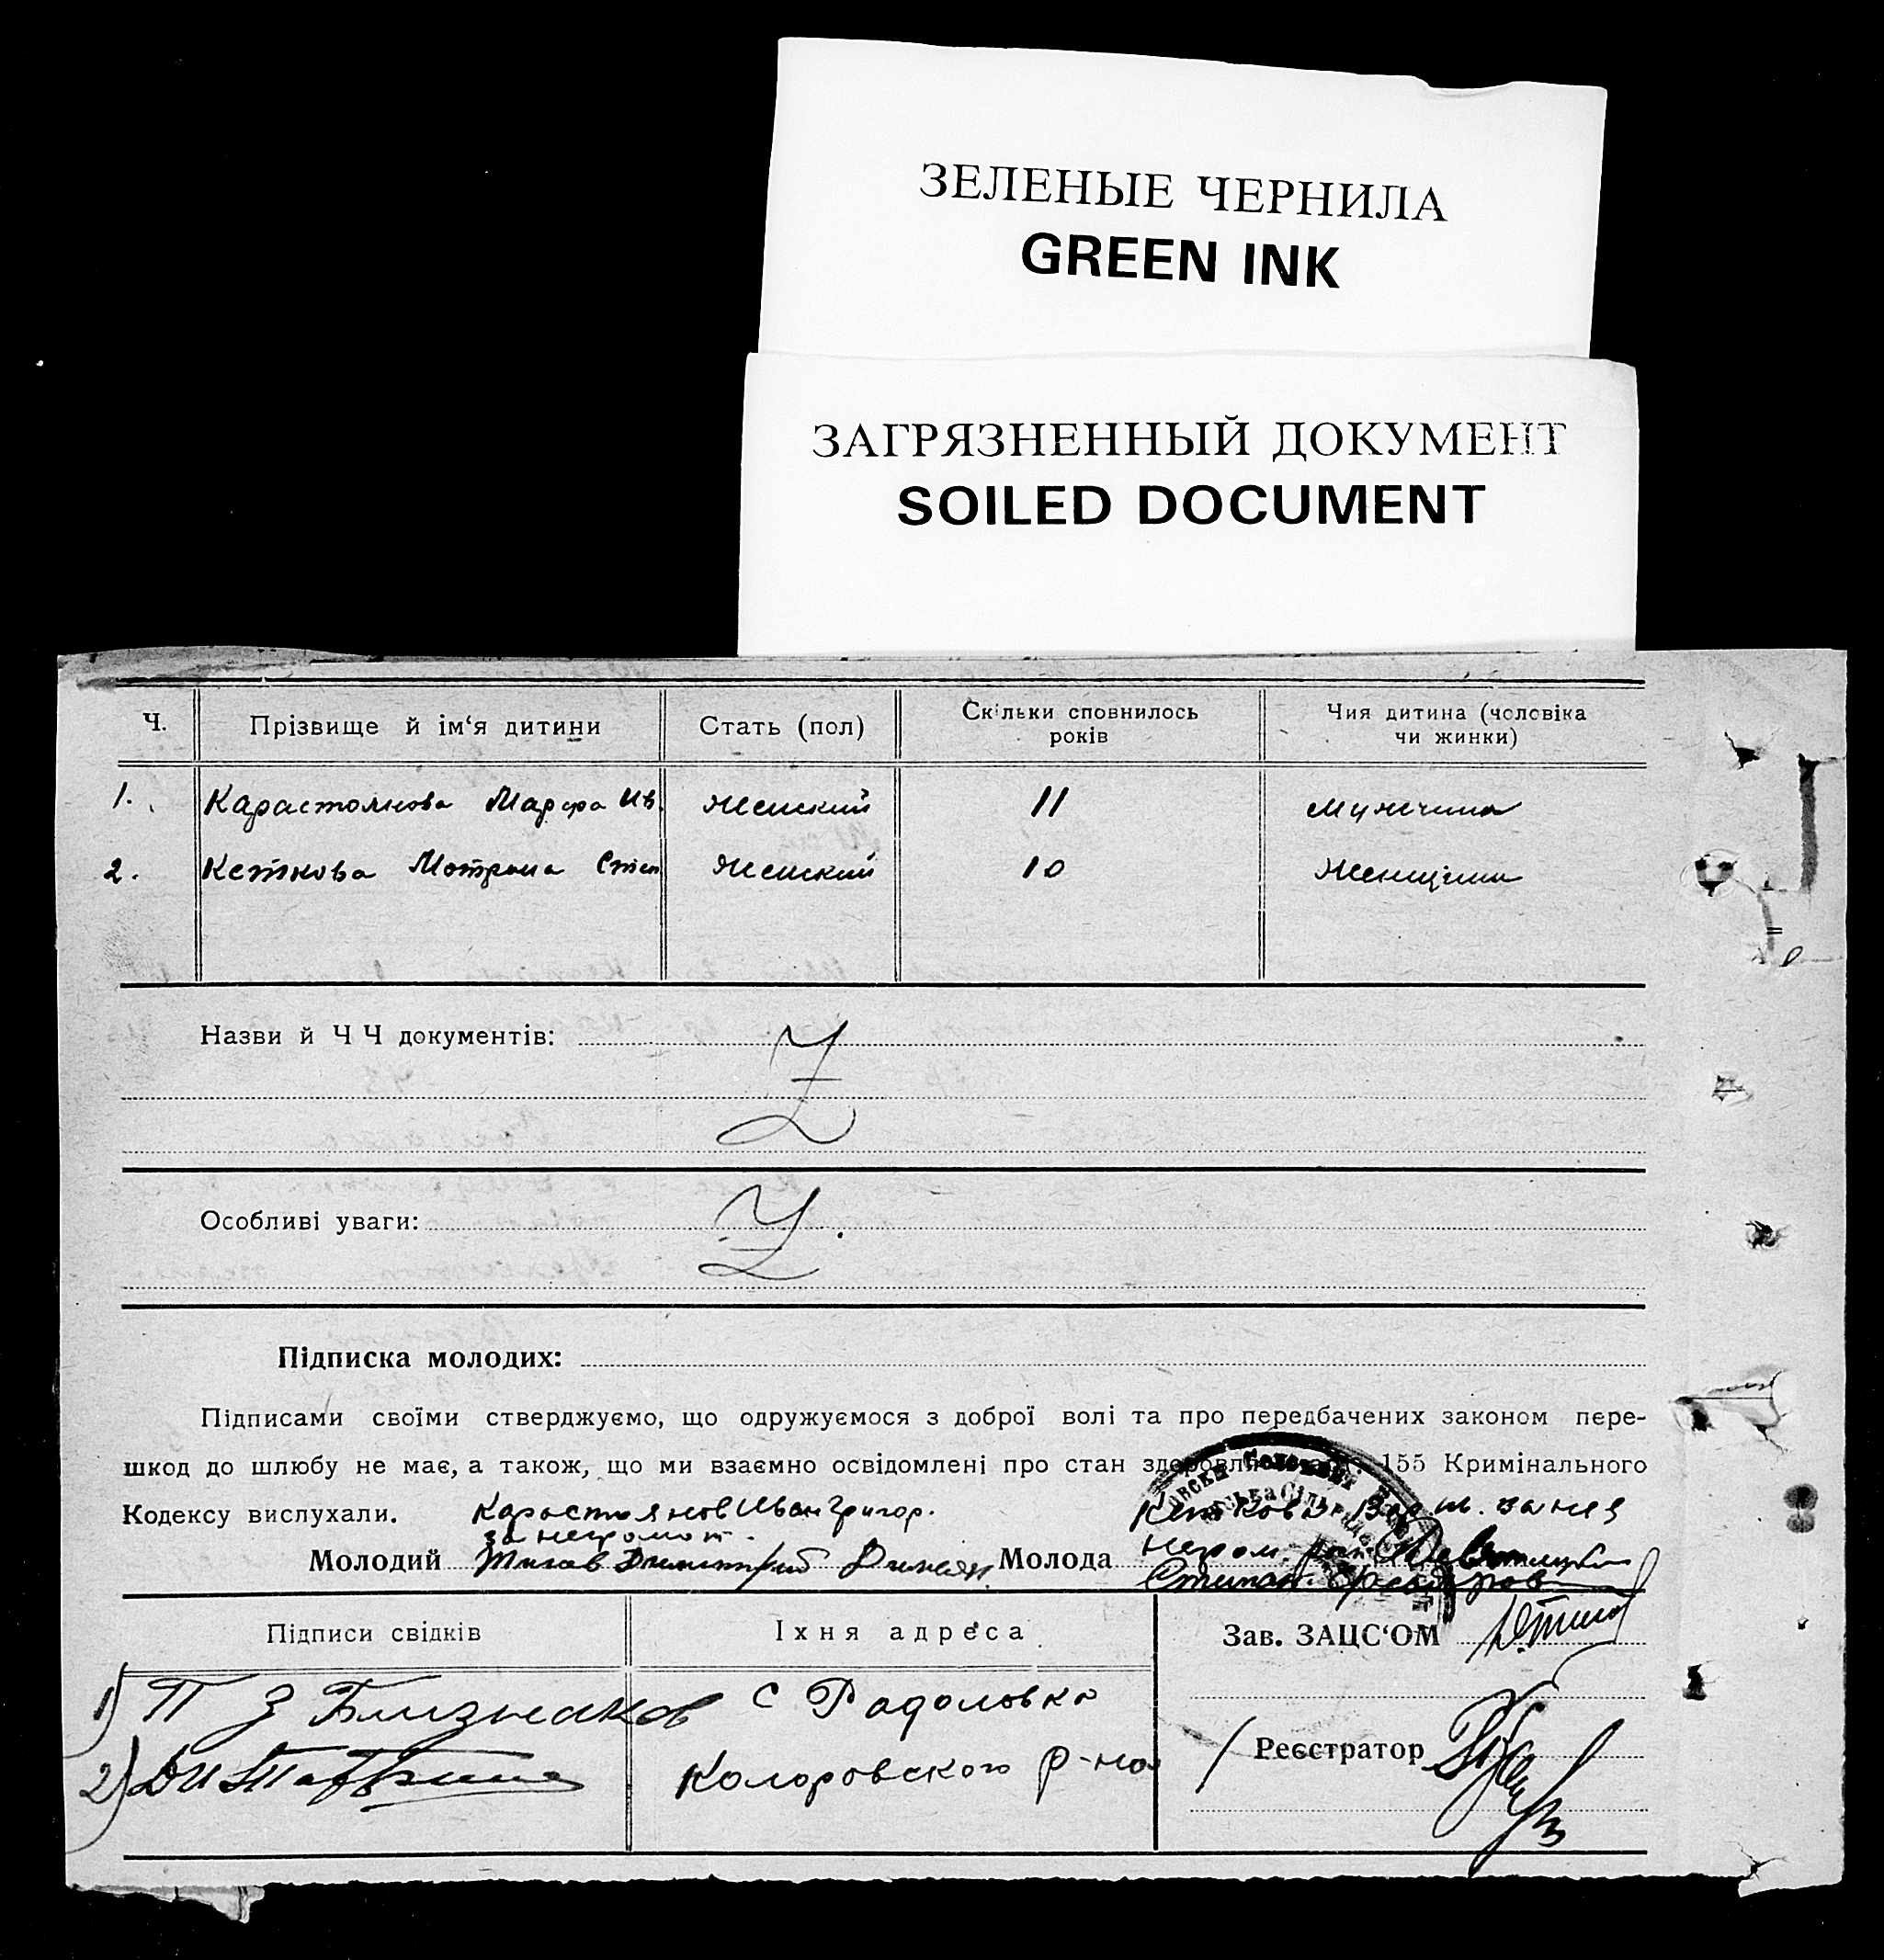 ЗЕЛЕНЫЕ ЧЕРНИЛА
GREEN INK
ЗАГРЯЗНЕННЫЙ ДОКУМЕНТ
SOILED DOCUMENT
Ч. Прізвище й ім‘я дитини Стать (пол) Скільки сповнилось років Чия дитина (чоловіка чи жинки)
1. Карастоянова Марфа Ив. Женский 11 Мужчина
2. Кеткова Мотрона Степ Женский 10 Женщина
Назви й Ч Ч документів:
Z
Особливі уваги:
Z
Підписка молодих:
Підписами своїми стверджуємо, що одружуємося з доброї волі та про передбачених законом пере-
шкод до шлюбу не має, а також, що ми взаємно освідомлені про стан здоровля 155 Кримінального
Кодексу вислухали. Карастоянов Иван Григор. Кеткова за нея
за неграмот.
Молодий Димитрий Молода неграм.
Степан
Підписи свідків Їхня адреса Зав. ЗАЦС‘ОМ
1) П З Близнаков с Радоловка
2) Д И Коларовского р-на Реєстратор